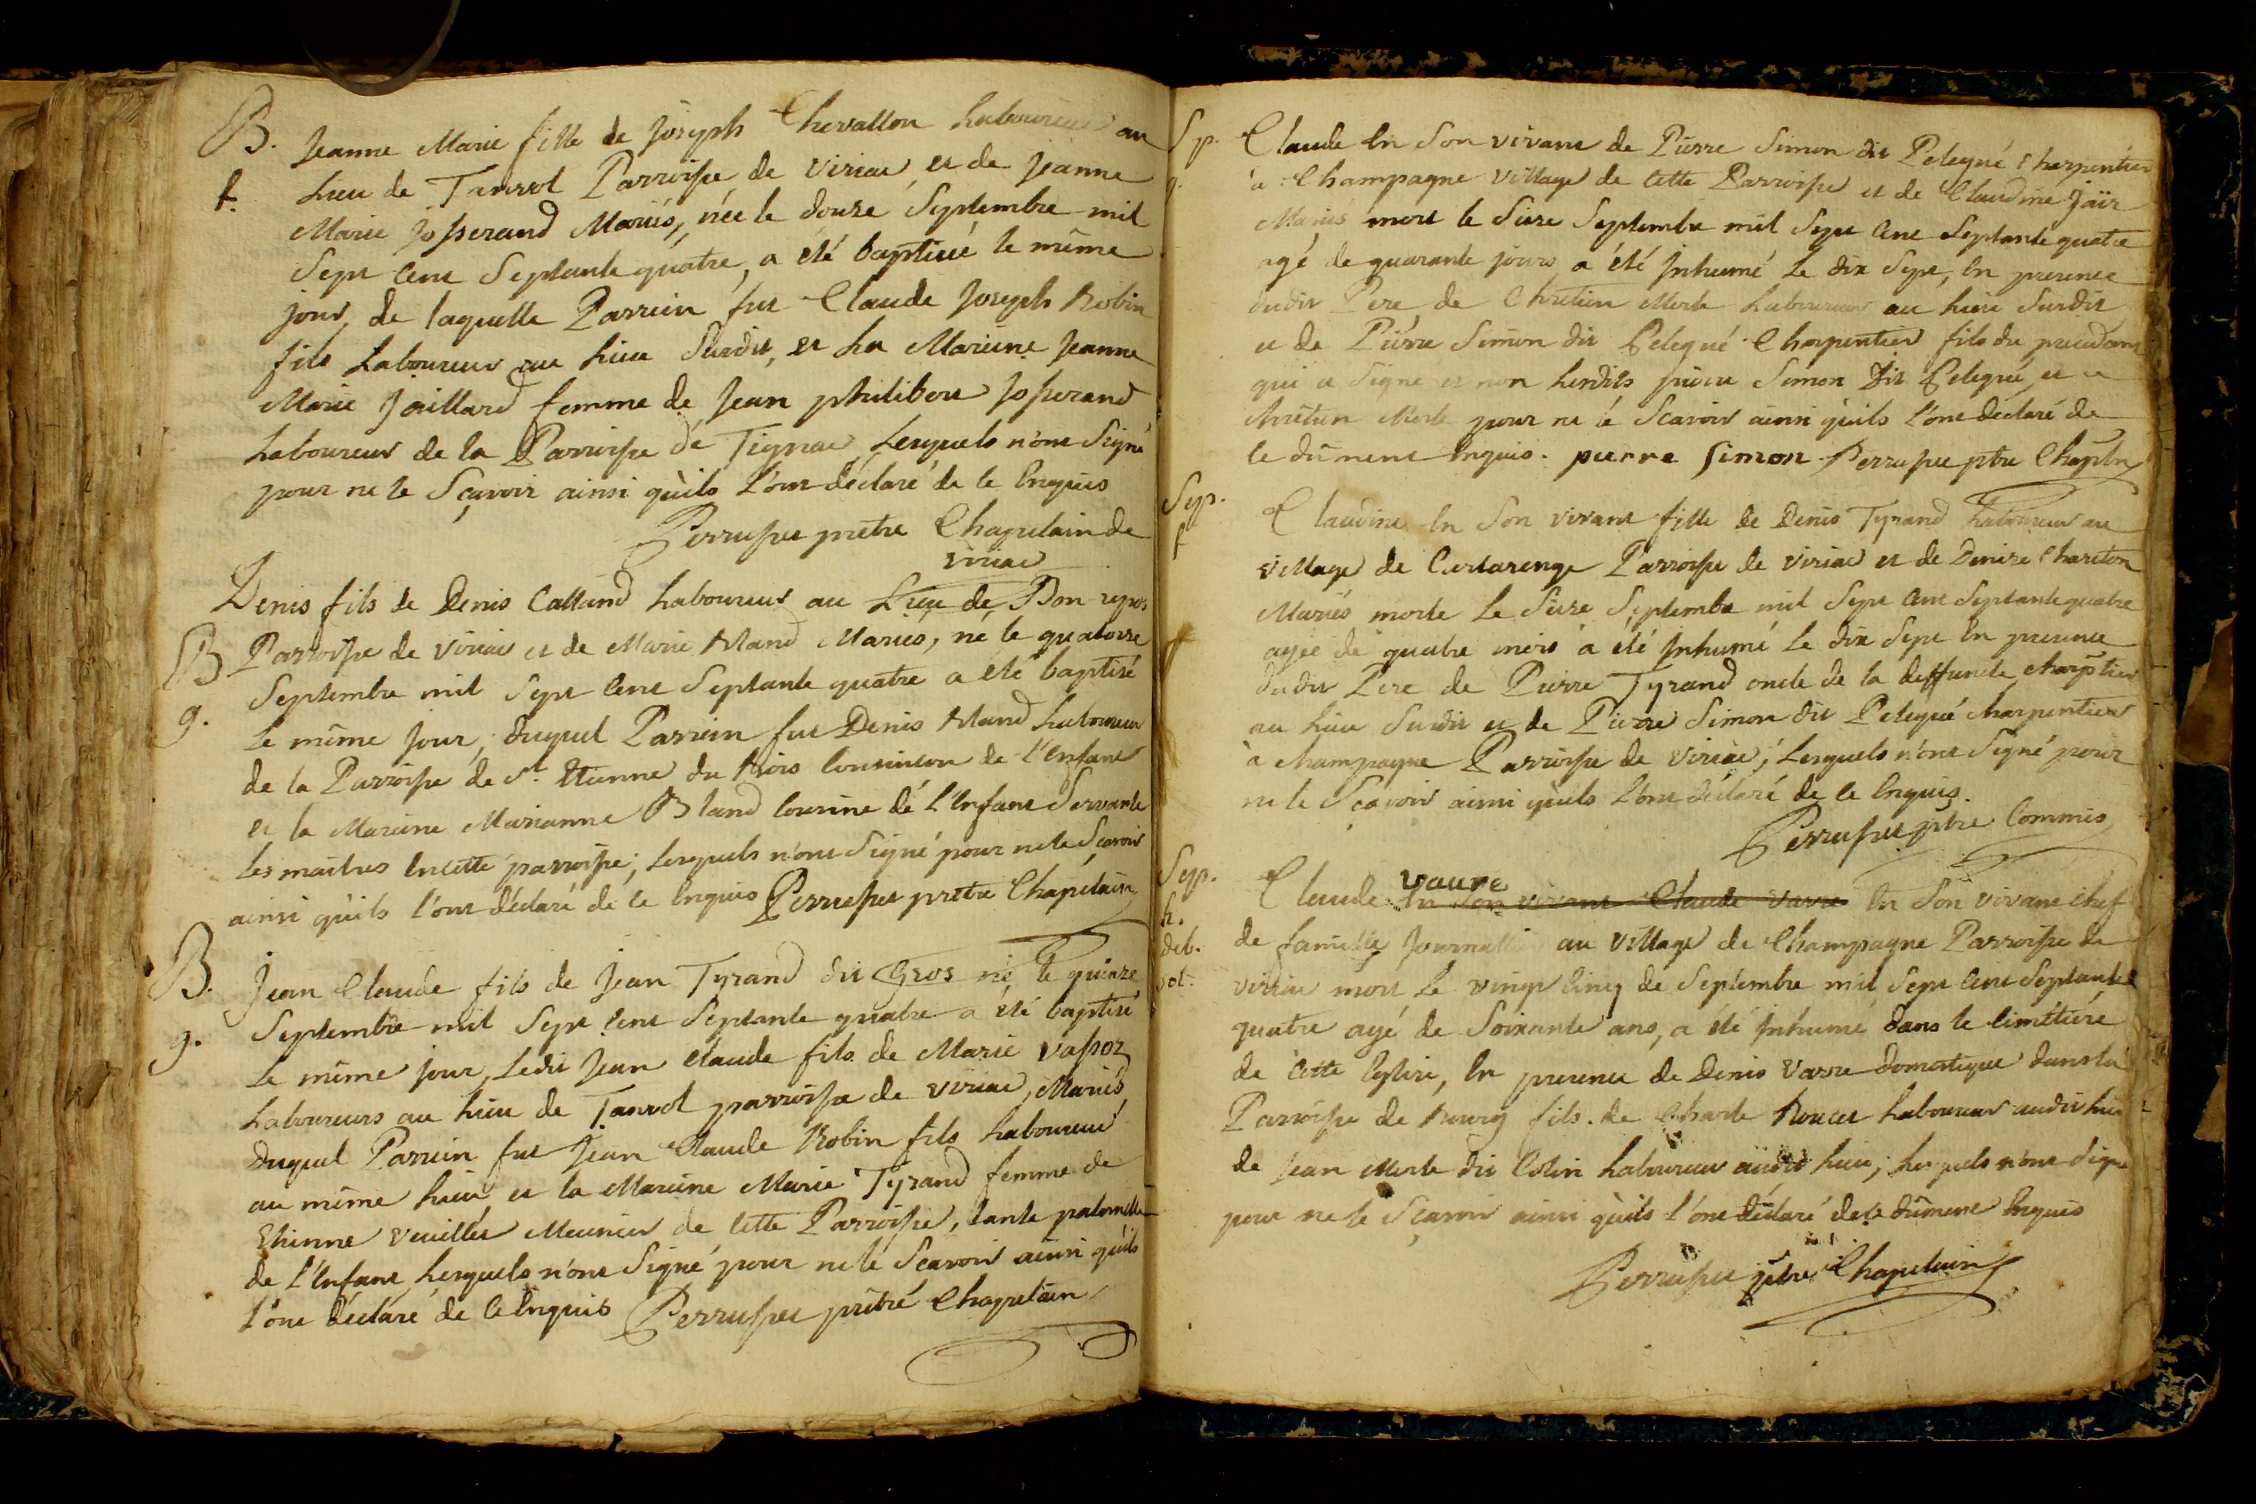 B. Jeanne Marie fille de Joseph Chevallon Laboureur au
f. Lieu de Tanvol Parroisse de viriac et de Jeanne
Marie Josserand Mariés, née le douze Septembre mil
Sept Cent Septante quatre, a été baptisé le même
jour, de laquelle Parrein fut Claude Joseph Robin
fils Laboureur au Lieu Susdit, et La Mareine Jeanne
Marie Jaillard femme de Jean philibert Josserand
Laboureur de la Parroisse de Tignac, Lesquels n'ont Signé
pour ne le Sçavoir ainsi qu'ils l'ont déclaré de ce Enquis
Perruset prêtre Chapelain de
viriac
Denis fils de Denis Calland Laboureur au Lieu de Bon repos
B Parroisse de viriac et de Marie Bland Mariés, né le quatorze
g. Septembre mil Sept Cent Septante quatre a été baptisé
Le même jour, duquel Parrein fut Denis Bland Laboureur
de la Parroisse de St. Etienne du Bois Cousin de l'Enfant
et la Mareine Marianne Bland Cousine de L'Enfant Servante
Les maitres en cette parroisse; Lesquels n'ont Signé pour ne le Sçavoir
ainsi qu'ils l'ont déclaré de ce Enquis Perruset prêtre Chapelain
B. Jean Claude fils de Jean Tyrand dit Gros né le quinze
g. Septembre mil Sept Cent Septante quatre a été baptisé
Le même jour, Ledit Jean Claude fils de Marie vapoz
Laboureurs au Lieu de Tanvol parroisse de viriac, Mariés
Duquel Parrein fut Jean Claude Robin fils Laboureur
au même Lieu et la Mareine Marie Tyrand femme de
Etienne veuillet Meunier de Cette Parroisse, tante paternelle
de l'Enfant, Lesquels n'ont Signé pour ne le Scavoir ainsi qu'ils
l'ont déclaré de ce Enquis Perruset prêtre Chapelain
Sp. Claude En Son vivant de Pierre Simon dit Pelegué Charpentier
g. à Champagne village de Cette Parroisse et de Claudine Jaïr
Mariés mort le Sieze Septembre mil Sept Cent Septante quatre
agé de quarante jours a été Inhumé Le dix Sept, En presence
dudit Pere, de Chretien Merle Laboureur au Lieu Susdit
et de Pierre Simon dit Pelegué Charpentier fils du precedant
qui a Signé et non Lesdits pierre Simon dit Pelegué et
Chretien Merle pour ne le Scavoir ainsi qu'ils l'ont déclaré de
ce dûment Enquis. pierre simon Perruset ptre Chapln
Sep. Claudine En Son vivant fille de Denis Tyrand Laboureur au
f village de Curtarenge Parroisse de viriac et de Denise Chariton
Mariés morte Le Sieze Septembre mil Sept Cent Septante quatre
agée de quatre mois a été Inhumé Le dix Sept En presence
dudit Pere de Pierre Tyrand oncle de la deffuncte, charptier
au Lieu Susdit et de Pierre Simon dit Pelegué charpentier
à champagne Parroisse de viriac; Lesquels n'ont Signé pour
ne le Sçavoir ainsi qu'ils L'ont déclaré de ce Enquis.
Perruset ptre Commis
vaure
Sep. Claude En Son vivant Claude varre En Son vivant chef
h. de famille Journallier au village de Champagne Parroisse de
deb. viriac mort Le vingt Cinq de Septembre mil Sept Cent Septante
sol. quatre agé de Soixante ans, a été Inhumé dans le Cimétiére
de Cette Eglise, En presence de Denis Varre domestique dans la
Parroisse de Bourg fils. de Charle Roncet Laboureur audit Lieu
de Jean Merle dit Colin Laboureur audit Lieu; Lesquels n'ont Signé
pour ne le Sçavoir ainsi qu'ils l'ont déclaré de ce dûment Enquis
Perruset ptre Chapelain